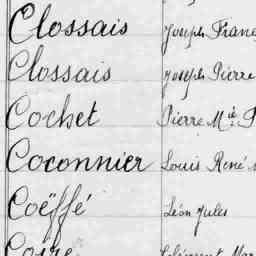 Clossais Joseph Franç
Clossais Joseph Pierre
Cochet Pierre Mie P
Coconnier Louis René
Coëffé Léon Jules